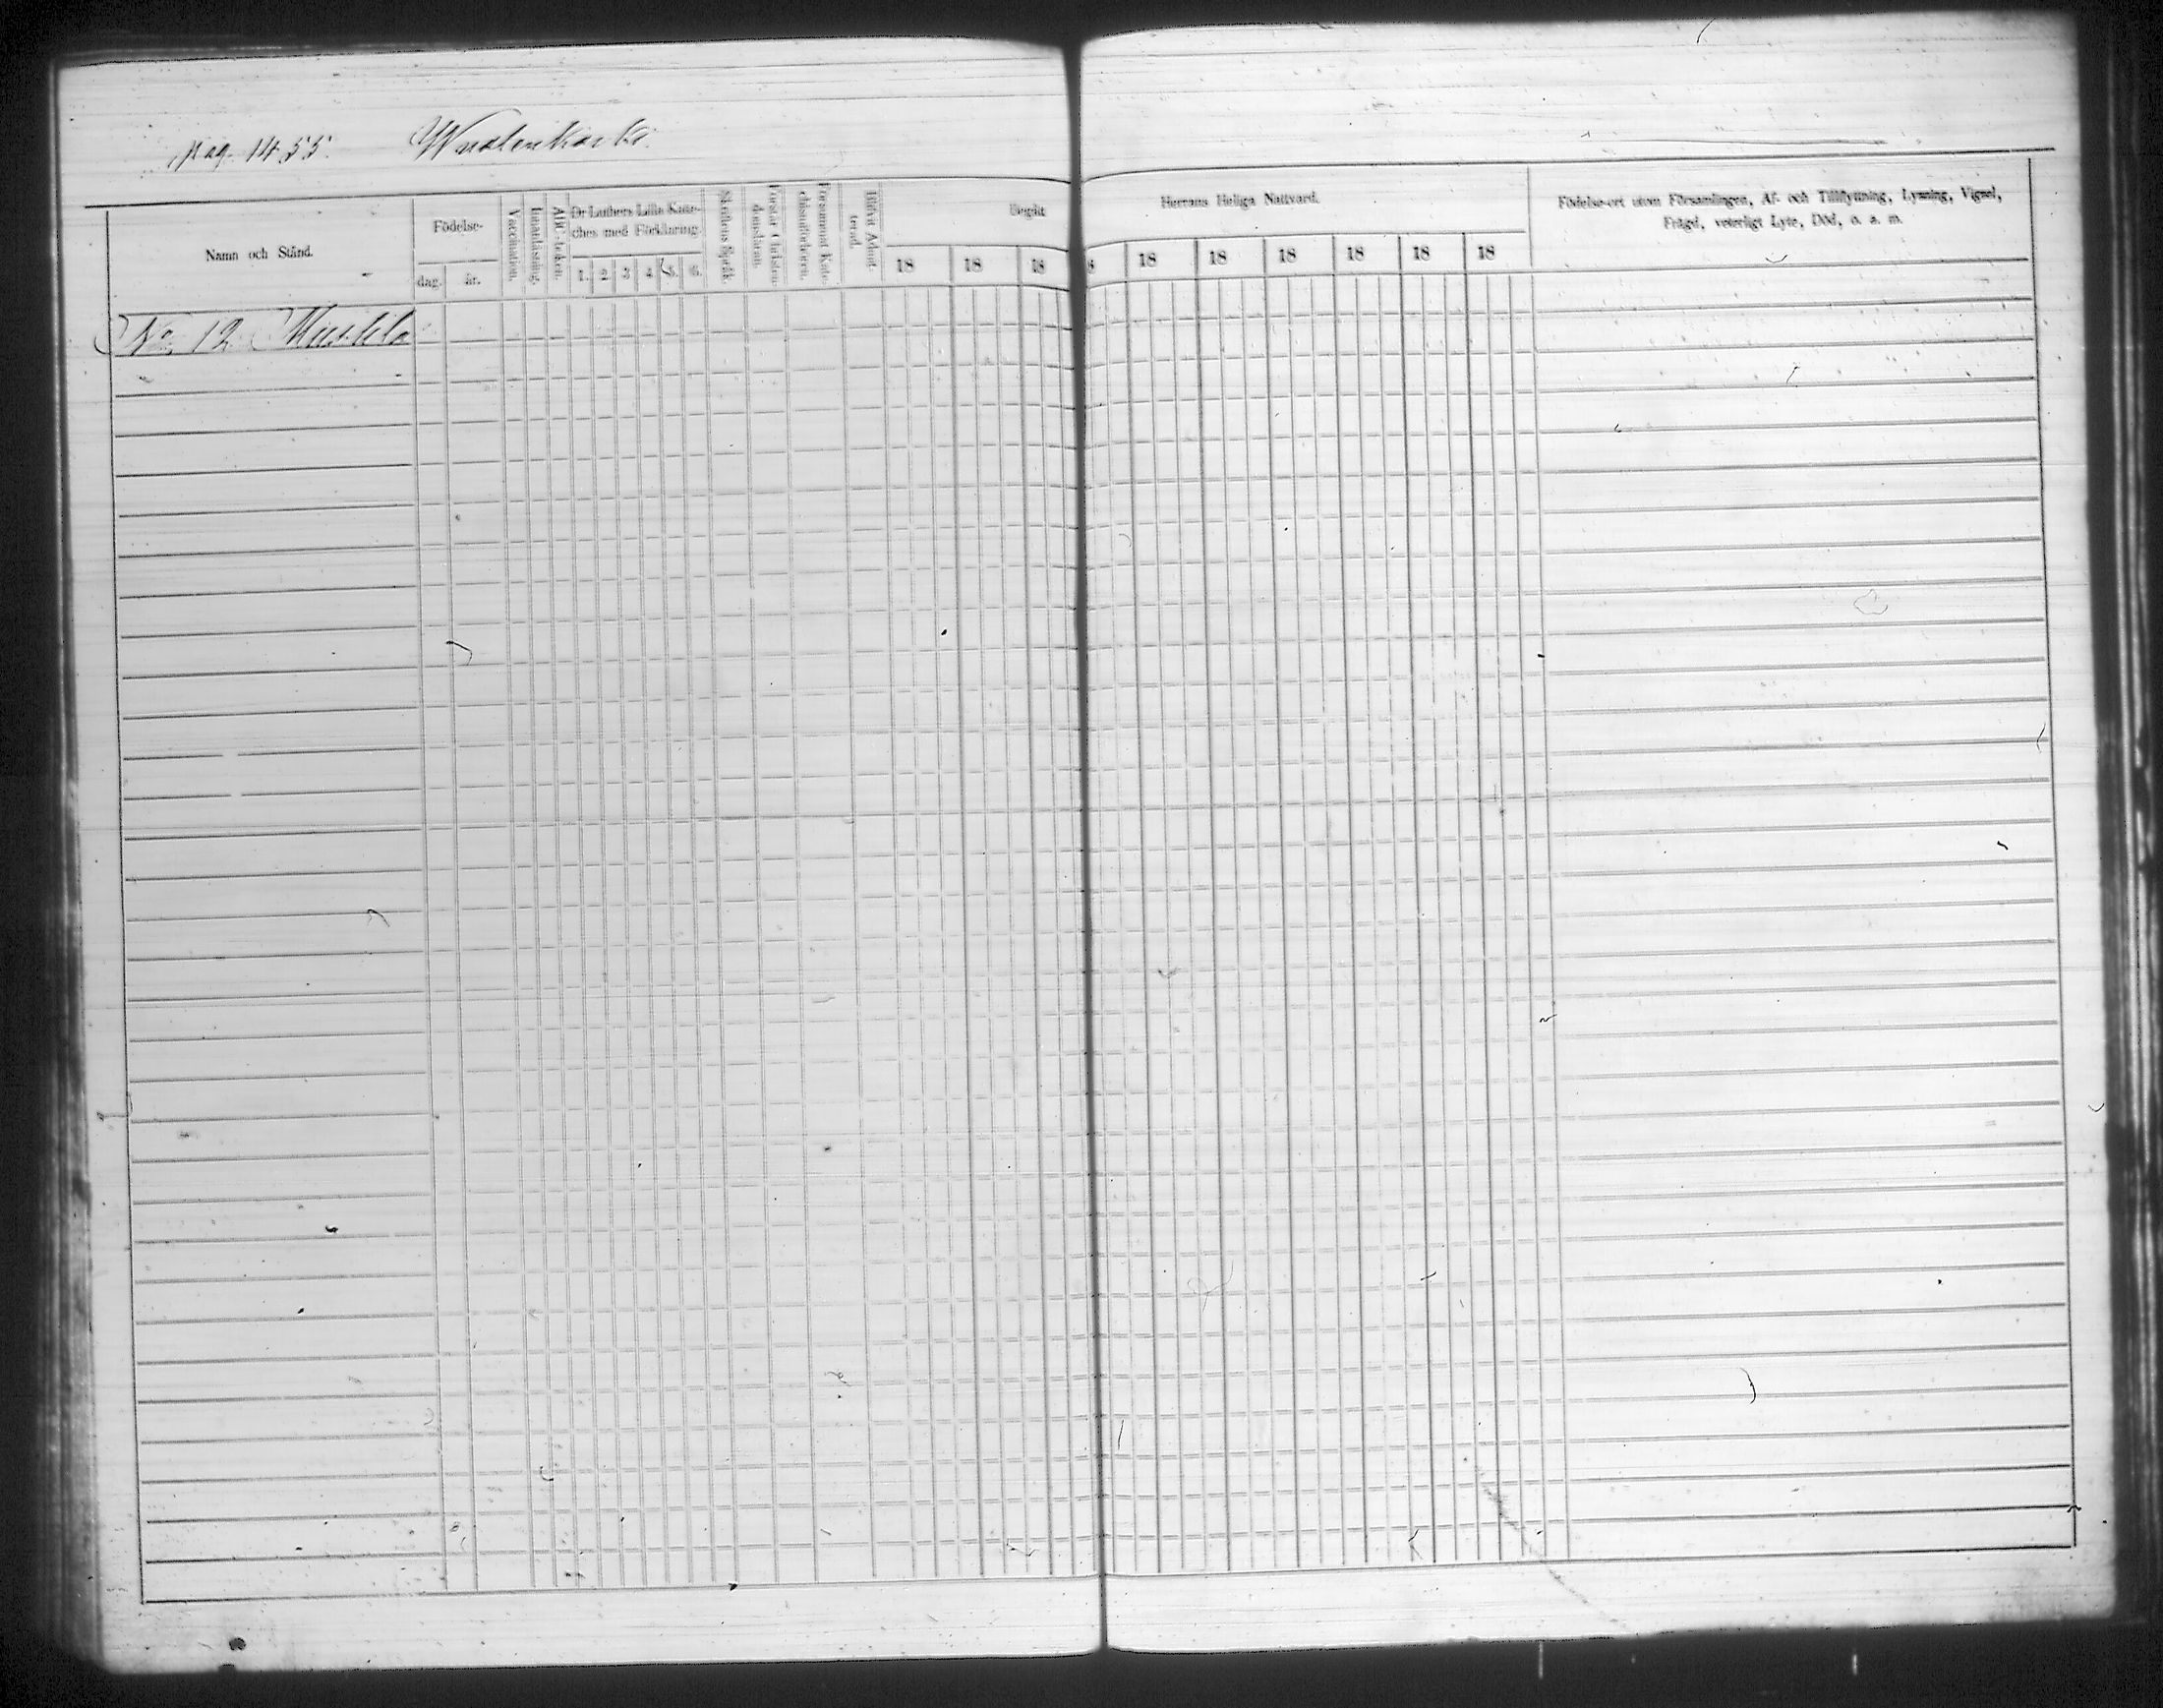 pag. 1455. Wuolenkoski.
Namn och Stånd.
Födelse-
dag.
år.
Vaccination.
Innanläsning.
ABC-boken.
Dr Luthers Lilla Kate-
ches med Förklaring.
1. 2 3 4 5. 6.
Skriftens Språk.
Förstår Christen-
domsläran.
Försummat Kate-
chismiförhören.
Blifvit Admit-
terad.
Begått
Herrans Heliga Nattvard.
18 18 18 18 18 18 18 18 18
Födelse-ort utom Församlingen, Af- och Tillflyttning, Lysning, Vigsel,
Frägd, veterligt Lyte, Död, o. a. m.
No. 12